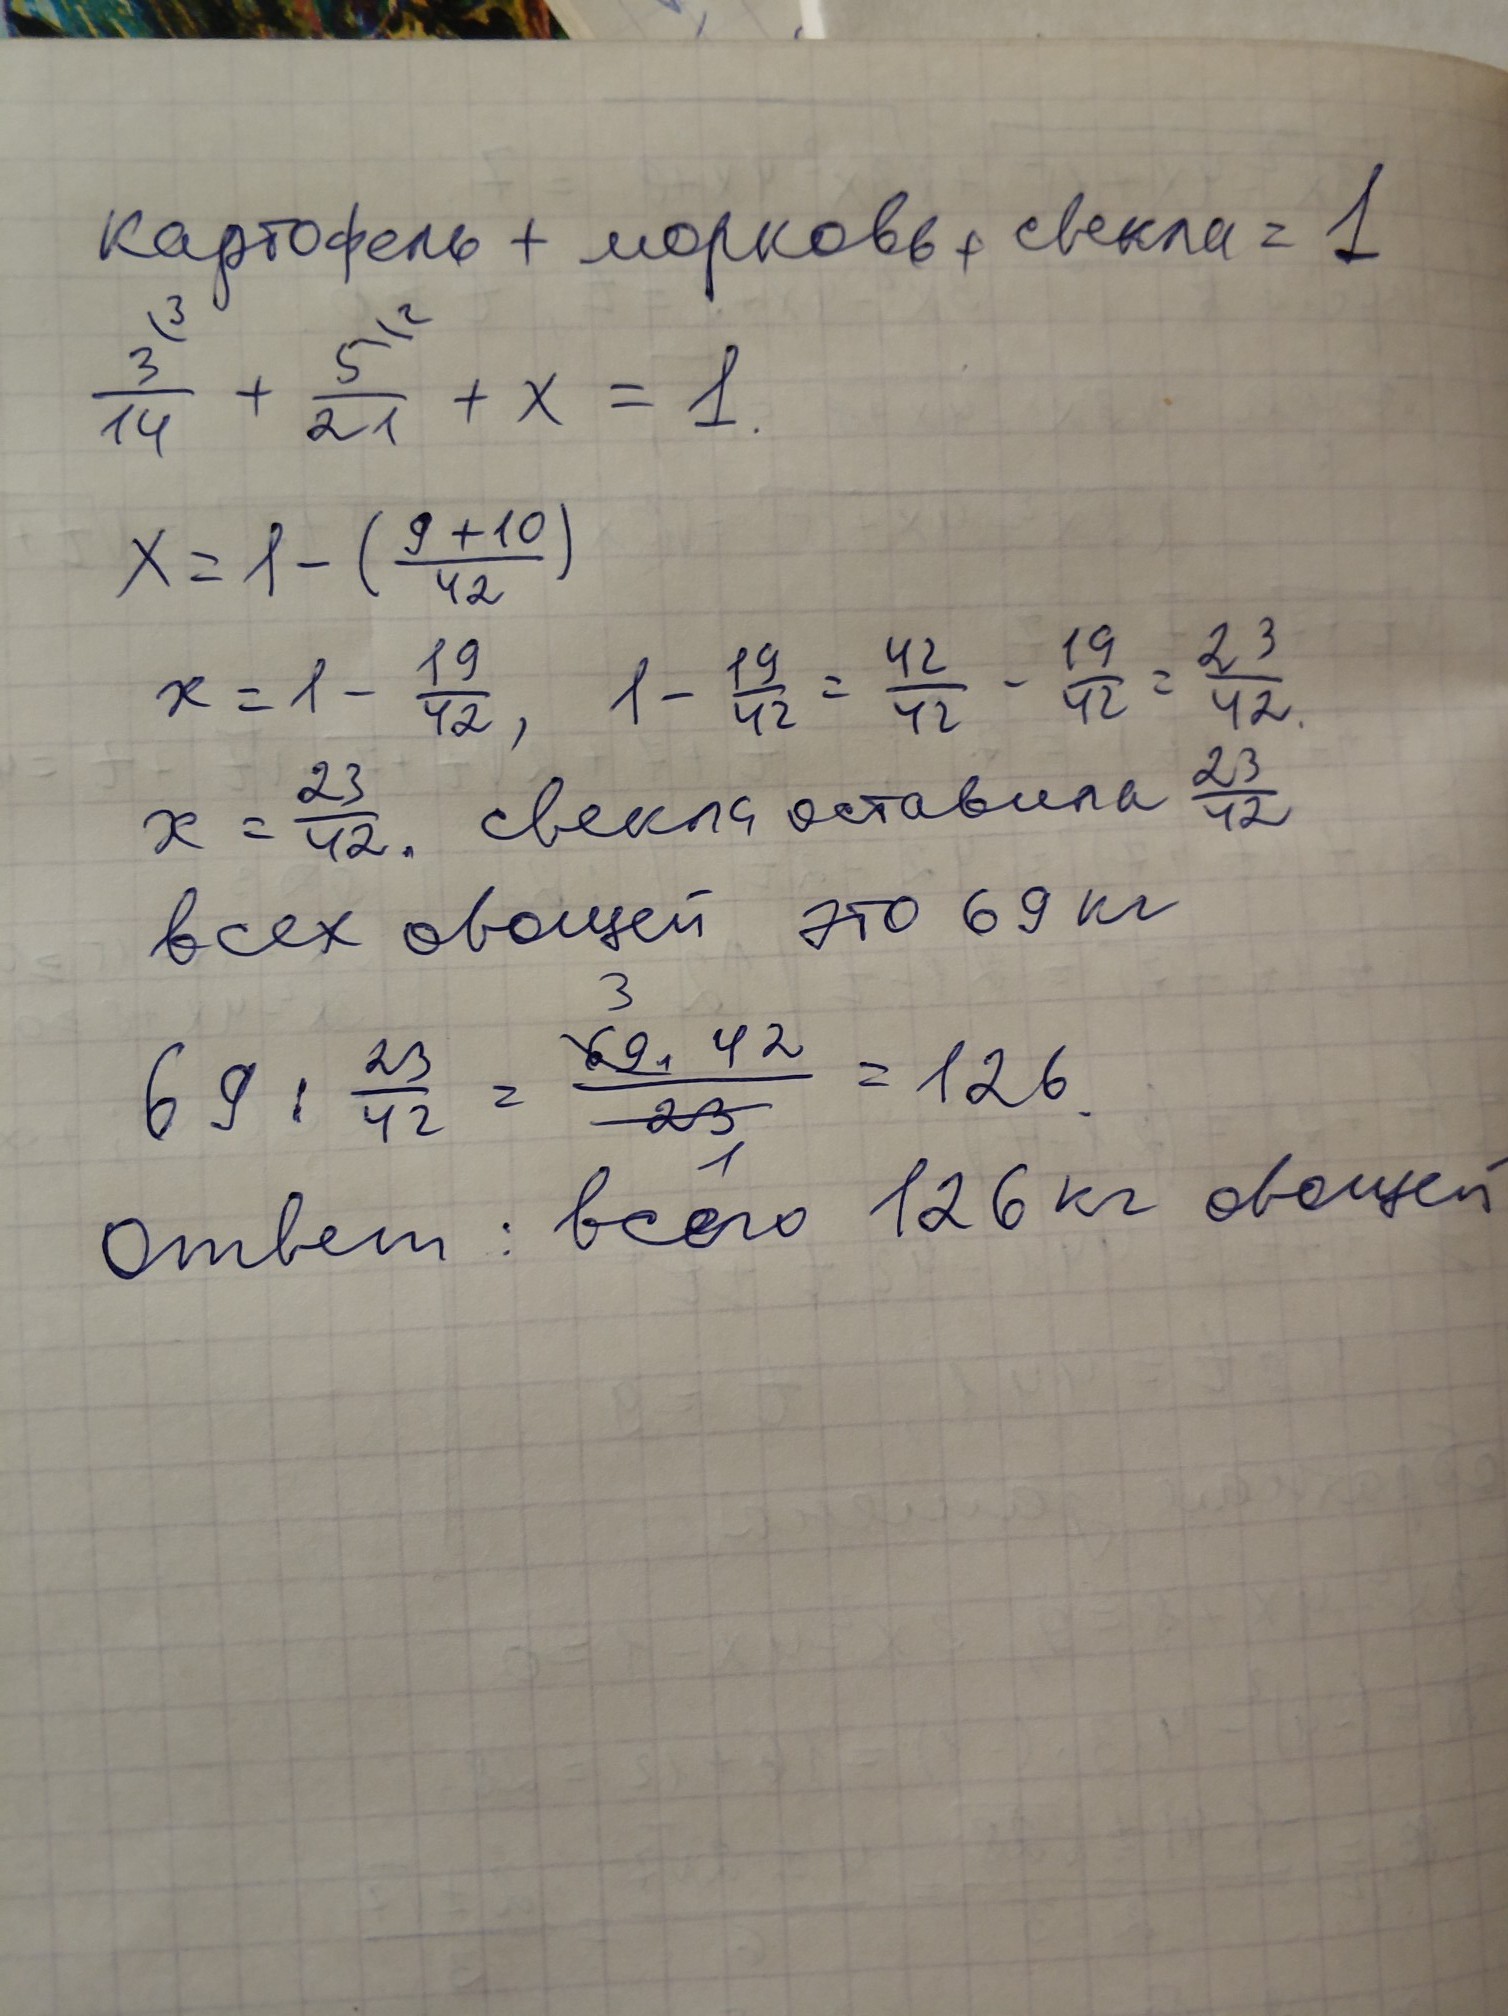 картофель + морковь + свекла = 1
3/14 \3 + 5/21 \2 + x = 1.
X = 1 - (9+10/42)
x = 1 - 19/42, 1 - 19/42 = 42/42 - 19/42 = 23/42.
x = 23/42. свекла оставила 23/42
всех овощей это 69 кг
3
69 : 23/42 = 69 · 42/23 = 126.
1
Ответ : всего 126 кг овощей